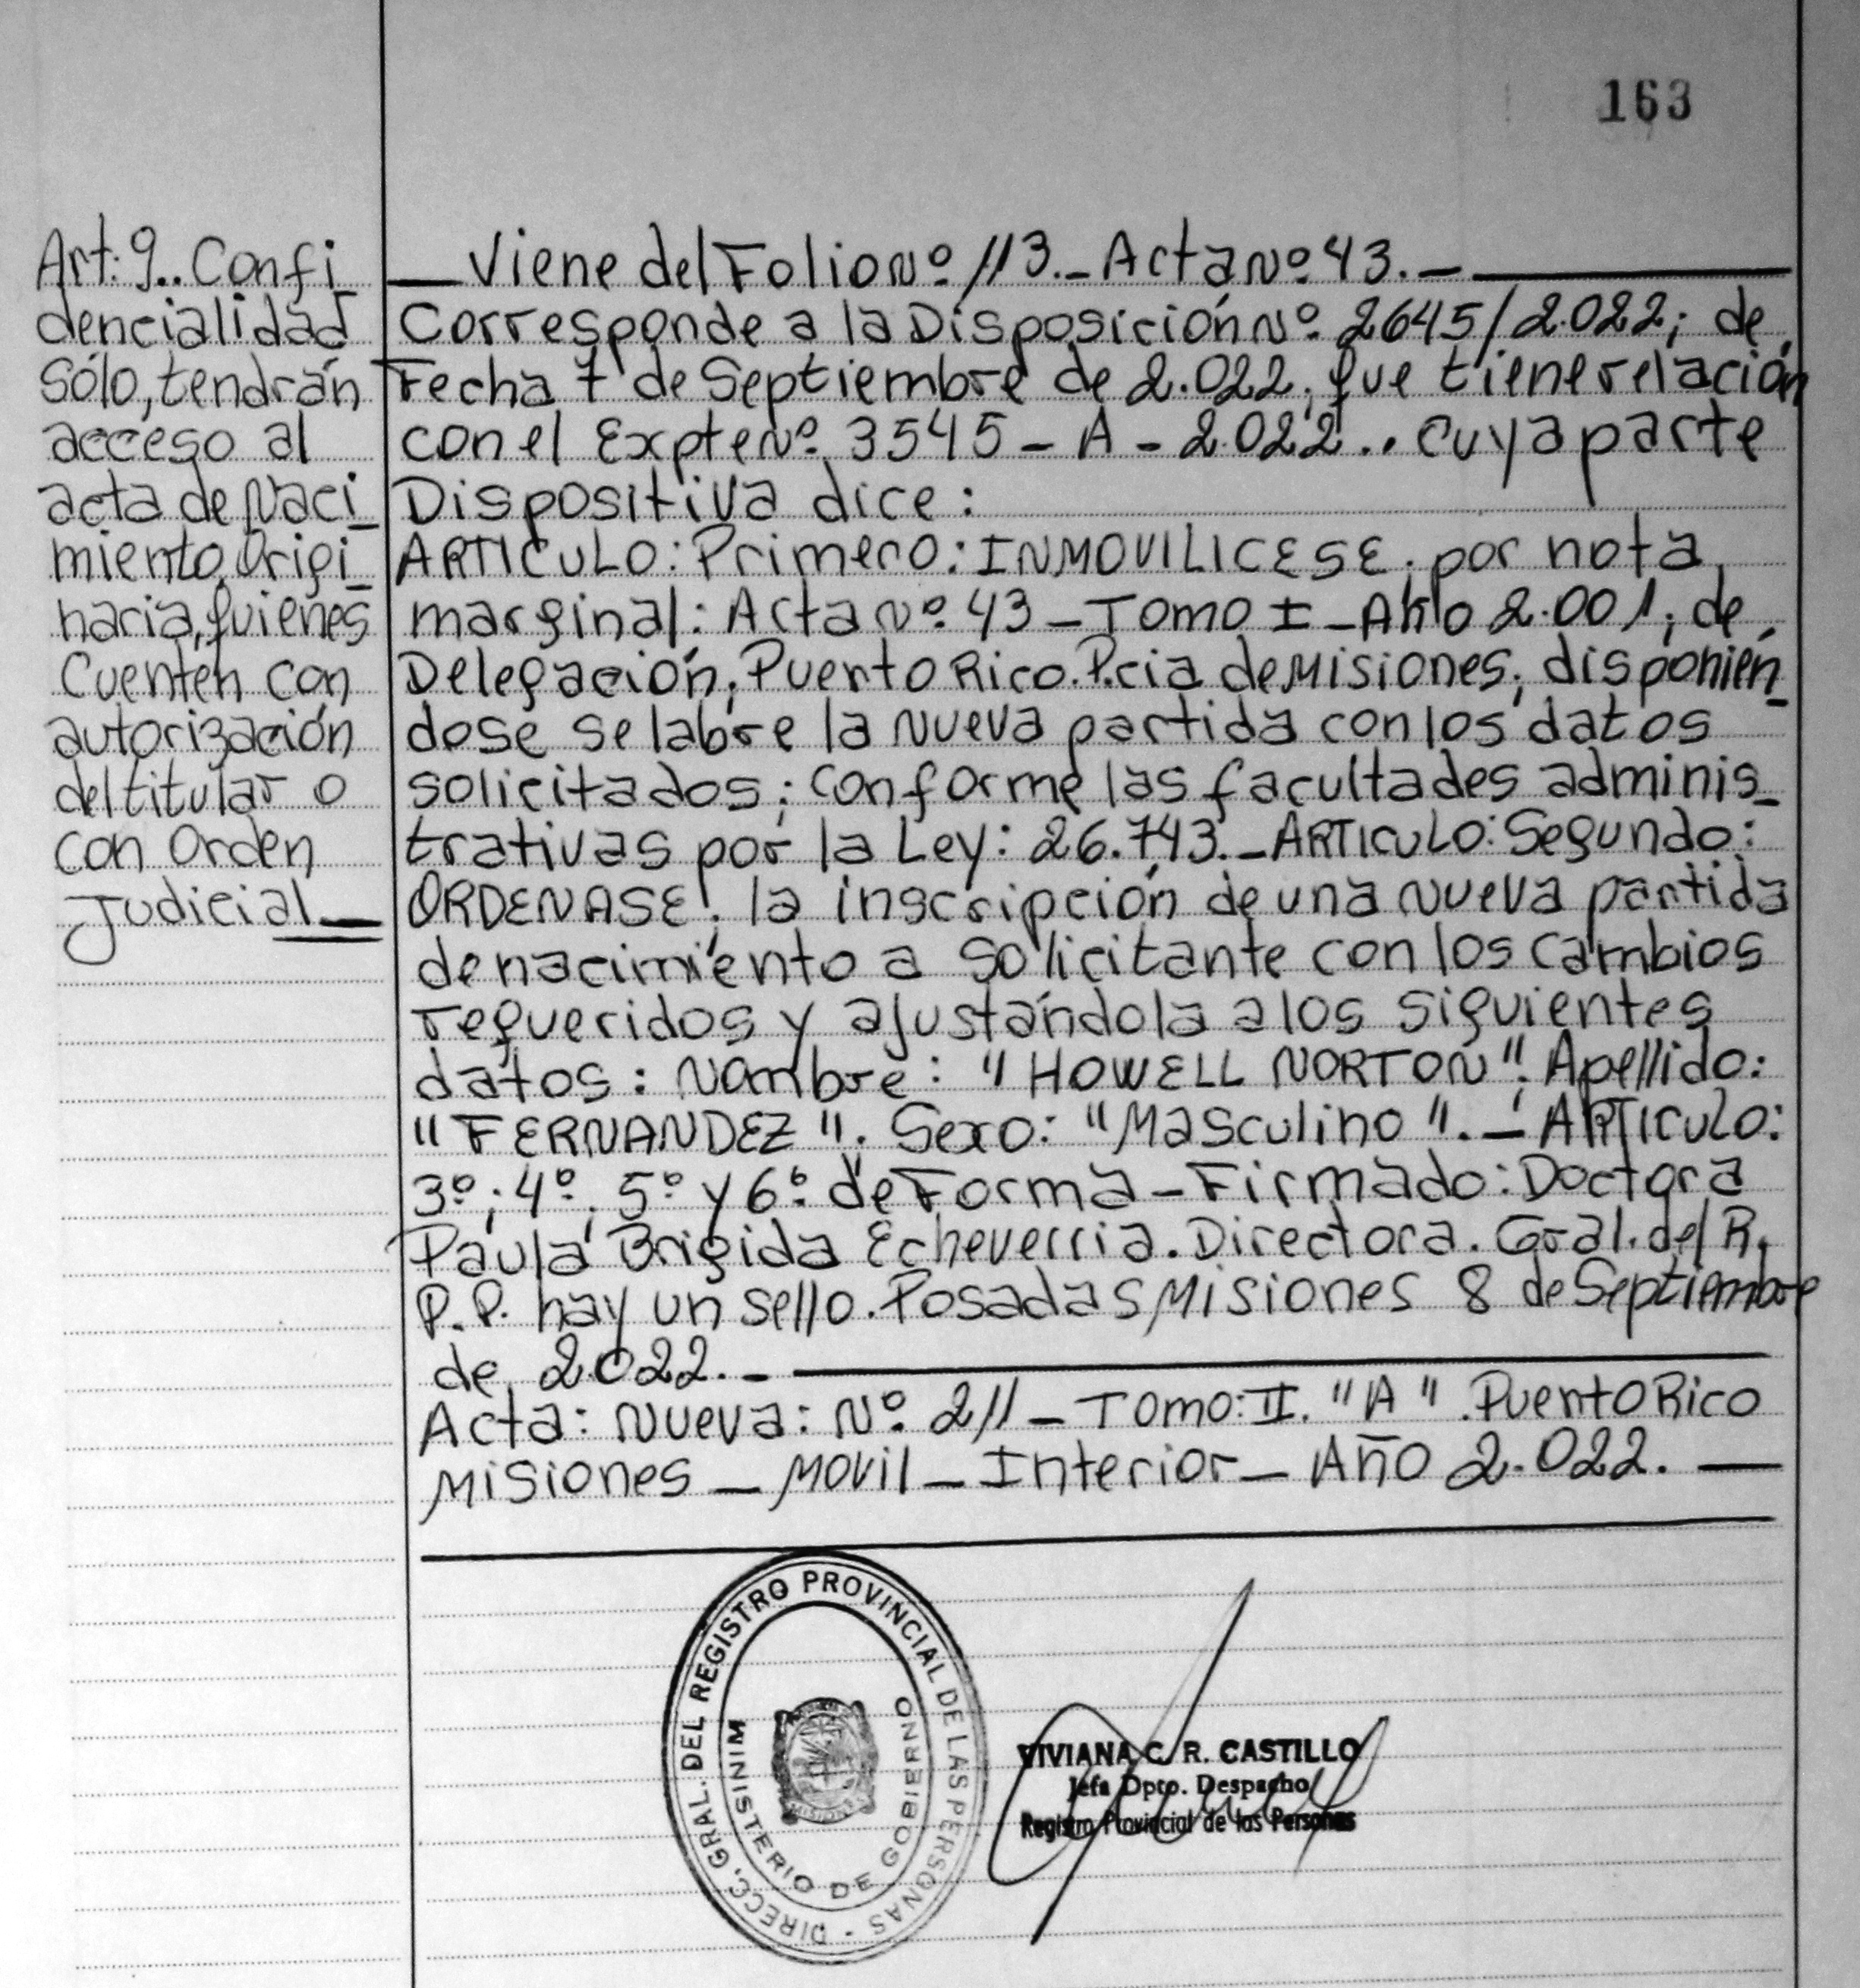 163
Art: 9.. Confi_
dencialidad
Sólo, tendrán
acceso al
acta de Naci_
miento, Origi_
naria, quienes
Cuenten con
autorización
del titular o
con Orden
Judicial__
__Viene del Folio Nº 113._Acta Nº 43._
Corresponde a la Disposición Nº 2645/2.022; de
Fecha 7 de Septiembre de 2.022; que tiene relación
con el Expte Nº 3545 - A - 2.022.. Cuya parte
Dispositiva dice:
ARTICULO: Primero: INMOVILICESE; por nota
marginal: Acta Nº 43 - Tomo I - Año 2.001; de
Delegación; Puerto Rico. Pcia de Misiones; disponién_
dose se labre la nueva partida con los datos
solicitados; conforme las facultades adminis_
trativas por la Ley: 26.743._ARTICULO: Segundo:
ORDENASE: la inscripción de una nueva partida
de nacimiento a solicitante con los cambios
requeridos y ajustándola a los siguientes
datos: Nombre: "HOWELL NORTON". Apellido:
"FERNANDEZ". Sexo: "Masculino"._ ARTICULO:
3º; 4º; 5º y 6º de Forma - Firmado: Doctora
Paula Brigida Echeverria. Directora. Gral. del R.
P.P. hay un sello. Posadas Misiones 8 de Septiembre
de 2.022._
Acta: Nueva: Nº 211 - Tomo: II. "A". Puerto Rico
Misiones _ Movil _ Interior _ Año 2.022. _
DIRECC. GRAL. DEL REGISTRO PROVINCIAL DE LAS PERSONAS
MINISTERIO DE GOBIERNO
MISIONES
VIVIANA C. R. CASTILLO
Jefa Dpto. Despacho
Registro Provincial de las Personas